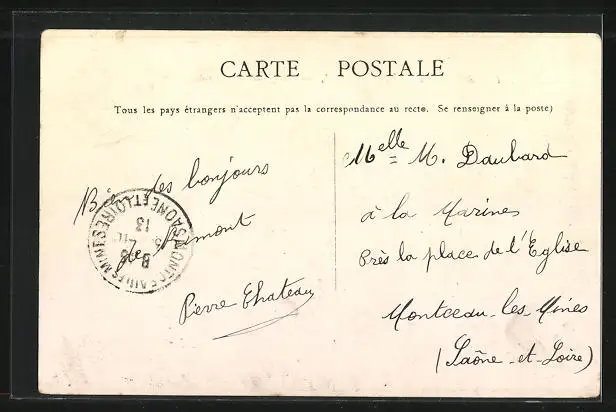 CARTE POSTALE
Tous les pays étrangers n'acceptent pas la correspondance au recto. Se renseigner à la poste)
des bonjours
de
Pierre Chateau
Melle M. Daubard
à la Marines
Près la place de l'Eglise
Montceau-les-Mines
(Saône-et-Loire)
MONTCEAU LES MINES
SAONE ET LOIRE
13